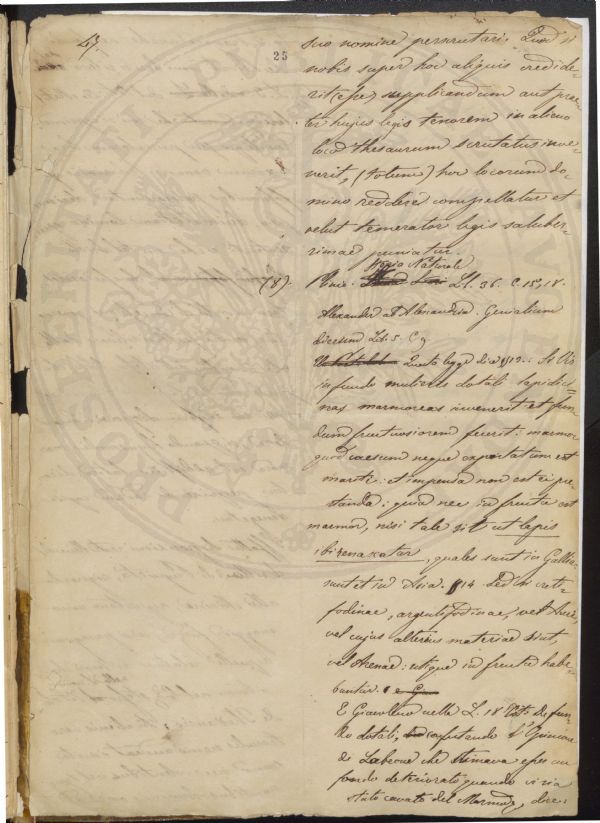 25
suo nomine perscrutari. Quod si
nobis super hoc aliquis credide-
rit (esse) supplicandum aut prae-
ter hujus legis tenorem in alieno
loco thesaurum scrutatus inve-
nerit, (totum) hoc locorum do-
mino reddere compellatur et
velut temerator legis saluber-
rimae puniatur.
Storia Naturale
(8). Plinio. L. 36. C. 15, 18.
Alexander ab Alexandro. Genialium
dierum Lib. 5. C. 9
Questa legge dice §13: Si Vir
in fundo mulieris dotali lapidici-
nas marmoreas invenerit et fun-
dum fructuosiorem fecerit: marmor
quod caesum neque exportatum est
mariti: et impensa non est ei prae-
standa: quia nec in fructu est
marmor, nisi tale sit ut lapis
ibi renascatur, quales sunt in Gallia
sunt et in Asia. §14. Sed si creti-
fodinae, argenti fodinae, vel Auri,
vel cujus alterius materiae sint,
vel Arenae: utique in fructu habe-
buntur.
E Giavoleno nella L. 18 de fun-
do dotali, confutando l'Opinione
di Labeone che stimava esser un
fondo deteriorato quando vi sia
stato cavato del Marmo, dice: